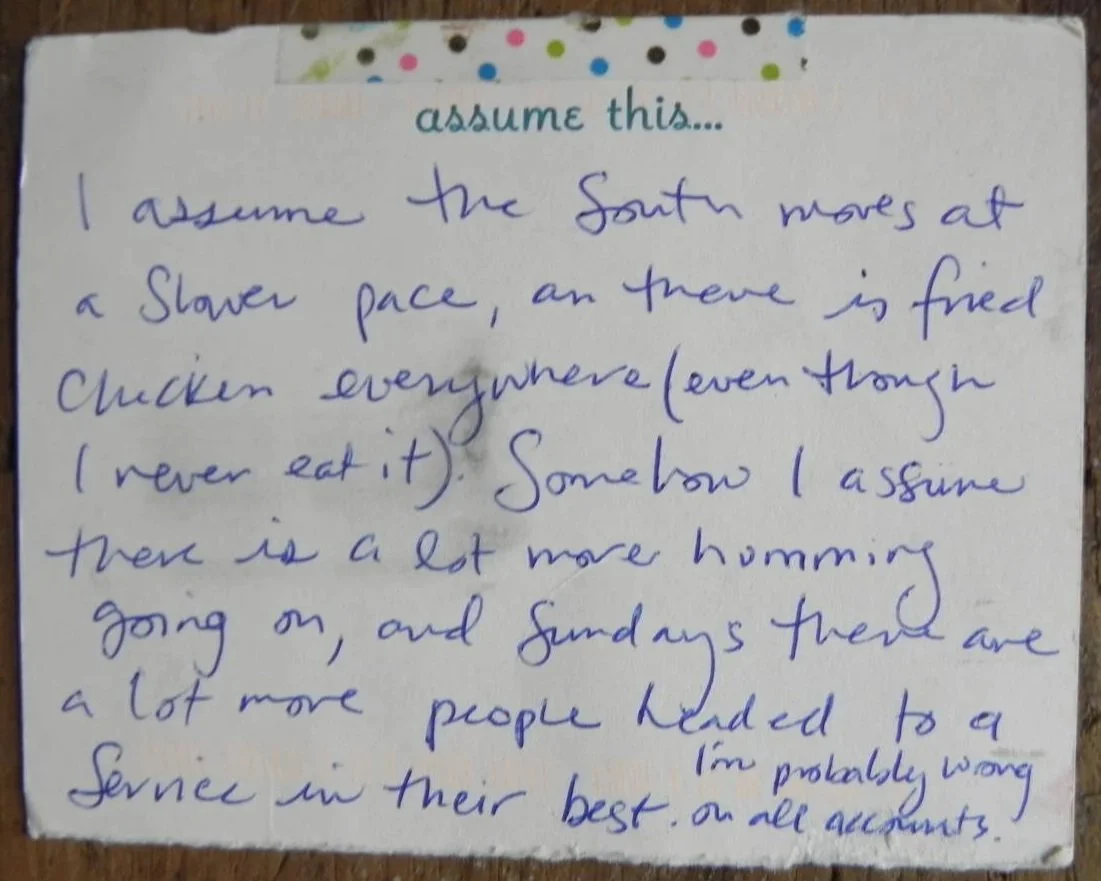 assume this...
I assume the South moves at
a Slower pace, an there is fried
Chicken everywhere (even though
I never eat it). Somehow I assume
there is a lot more humming
going on, and Sundays there are
a lot more people headed to a
Service in their best. I'm probably wrong
on all accounts.